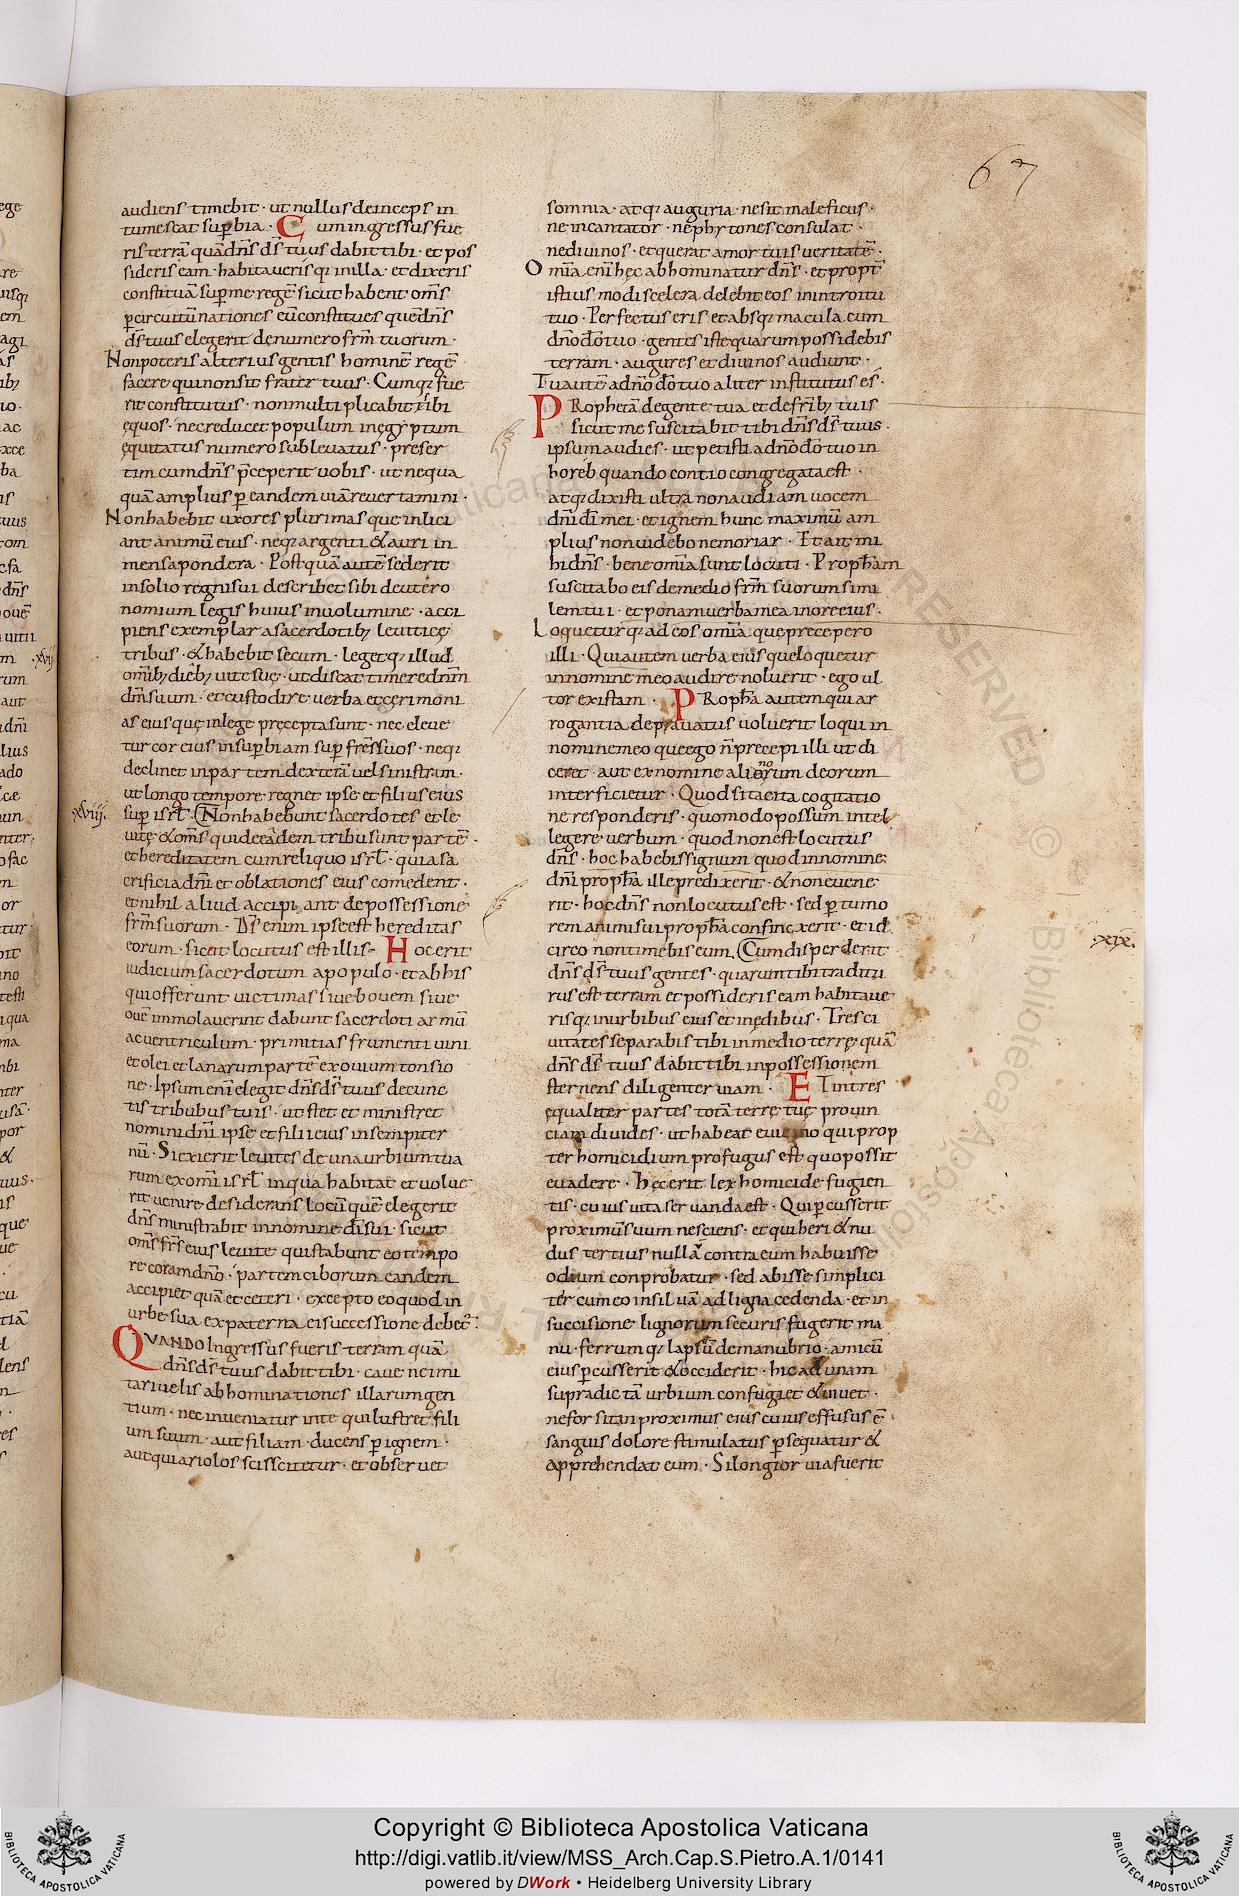 67
audiens timebit · ut nullus deinceps in
tumescat sup̄bia · Cum ingressus fue
ris terrā quā dn̄s ds̄ tuus dabit tibi · et pos
sideris eam · habitaverisq; in illa · et dixeris
constituā sup me regē sicut habent om̄s
p̱ circuitū nationes eū constitues quē dn̄s
ds̄ tuus elegerit de numero fr̄m tuorum ·
Non poteris alterius gentis hominē regē
facere qui non sit frater tuus · Cumq; fue
rit constitutus · non multiplicabit sibi
ęquos · nec reducet populum in ęgyptum
ęquitatus numero sublevatus · preser
tim cum dn̄s p̄ceperit vobis · ut nequa
quā amplius p̱ eandem viā revertamini ·
Non habebit uxores plurimas que inlici
ant animū eius · neq; argenti & auri in
mensa pondera · Postquā autē sederit
in solio regni sui describet sibi deutero
nomium legis huius in volumine · acci
piens exemplar a sacerdotib; leviticę
tribus · & habebit secum · legetq; illud
om̄ib; dieb; vite suę · ut discat timere dn̄m
dm̄ suum · et custodire verba et cęrimoni
as eius quę in lege pręcepta sunt · nec eleve
tur cor eius in sup̱biam sup̱ frēs suos · neq;
declinet in partem dexterā vel sinistram ·
ut longo tempore regnet ipse et filius eius
xviii.
sup̱ isrl̄ · Non habebunt sacerdotes et le
vitę & om̄s qui de eadem tribu sunt partē ·
et hereditatem cum reliquo isrl̄ · quia sa
crificia dn̄i et oblationes eius comedent ·
et nihil aliud accipiant de possessione
fr̄m suorum · Ds̄ enim ipse est hereditas
eorum · sicut locutus est illis · Hoc erit
iudicium sacerdotum a populo · et ab his
qui offerunt victimas sive bovem sive
ovē immolaverint dabunt sacerdoti armū
ac ventriculum · primitias frumenti vini
et olei et lanarum partē ex ovium tonsio
ne · Ipsum enī elegit dn̄s ds̄ tuus de cunc
tis tribubus tuis · ut stet et ministret
nomini dn̄i ipse et filii eius in sempiter
nū · Si exierit levites de una urbium tua
rum ex omī isrl̄ in qua habitat et volue
rit venire desiderans locū quē elegerit
dn̄s ministrabit in nomine dī sui · sicut
om̄s fr̄s eius levite qui stabunt eo tempo
re coram dn̄o · partem ciborum eandem
accipiet quā et ceteri · excepto eo quod in
urbe sua ex paterna ei successione debet̄ ·
QUANDO Ingressus fueris terram quā
dn̄s ds̄ tuus dabit tibi · cave ne imi
tari velis abhominationes illarum gen
tium · nec inveniatur in te qui lustret fili
um suum · aut filiam · ducens p̱ ignem ·
aut qui ariolos sciscitetur · et observet
somnia · atq; auguria · ne sit maleficus ·
ne incantator · ne phytones consulat ·
ne divinos · et querat a mortuis veritatē ·
Omīa enī hęc abhominatur dn̄s · et propt̄
istius modi scelera delebit eos in introitu
tuo · Perfectus eris et absq; macula cum
dn̄o dō tuo · gentes iste quarum possidebis
terram · augures et divinos audiunt ·
Tu autē a dn̄o dō tuo aliter institutus es ·
Prophetā de gente tua et de fr̄ib; tuis
sicut me suscitabit tibi dn̄s ds̄ tuus ·
ipsum audies · ut petisti a dn̄o dō tuo in
horeb quando contio congregata est ·
atq; dixisti ultra non audiam vocem
dn̄i dī mei · et ignem hunc maximū am
plius non videbo ne moriar · Et ait mi
hi dn̄s · bene omīa sunt locuti · Proph̄am
suscitabo eis de medio fr̄m suorum simi
lem tui · et ponam verba mea in ore eius ·
Loqueturq; ad eos omīa que precepero
illi · Qui autem verba eius que loquetur
in nomine meo audire noluerit · ego ul
tor existam · Proph̄a autem qui ar
rogantia depravatus voluerit loqui in
nomine meo que ego n̄ precepi illi ut di
ceret · aut ex nomine alienorum deorum
interficietur · Quod si tacita cogitatio
ne responderis · quomodo possum intel
legere verbum · quod non est locutus
dn̄s · hoc habebis signum quod in nomine
dn̄i proph̄a ille predixerit · & non evene
rit · hoc dn̄s non locutus est · sed p̱ tumo
rem animi sui proph̄a confinxerit · et id
xix.
circo non timebis eum. Cum disperderit
dn̄s ds̄ tuus gentes · quarum tibi traditu
rus est terram et possideris eam habitave
risq; in urbibus eius et in ędibus · Tres ci
vitates separabis tibi in medio terrę quā
dn̄s ds̄ tuus dabit tibi in possessionem
sternens diligenter viam · Et in tres
ęqualiter partes totā terrę tuę provin
ciam divides · ut habeat e vicino qui prop
ter homicidium profugus est quo possit
evadere · Hęc erit lex homicide fugien
tis · cuius vita servanda est · Qui p̱cusserit
proximū suum nesciens · et qui heri & nu
dus tertius nullū contra eum habuisse
odium conprobatur · sed abisse simplici
ter cum eo in silvā ad ligna cedenda · et in
succisione lignorum securis fugerit ma
nu · ferrumq; lapsū de manubrio · amicū
eius p̱cusserit & occiderit · hic ad unam
supradictā urbium confugiet & vivet ·
ne forsitan proximus eius cuius effusus ē
sanguis dolore stimulatus p̱sequatur &
apprehendat eum · Si longior via fuerit
Copyright © Biblioteca Apostolica Vaticana
http://digi.vatlib.it/view/MSS_Arch.Cap.S.Pietro.A.1/0141
powered by DWork • Heidelberg University Library
BIBLIOTECA APOSTOLICA VATICANA
BIBLIOTECA APOSTOLICA VATICANA